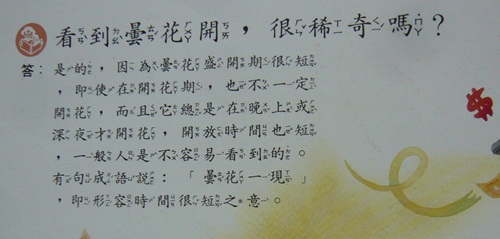 看到曇花開，很稀奇嗎？
答：是的，因為曇花盛開期很短
，即使在開花期，也不一定
開花，而且它總是在晚上或
深夜才開花，開放時間也短
，一般人是不容易看到的。
有句成語說：「曇花一現」
，即形容時間很短之意。